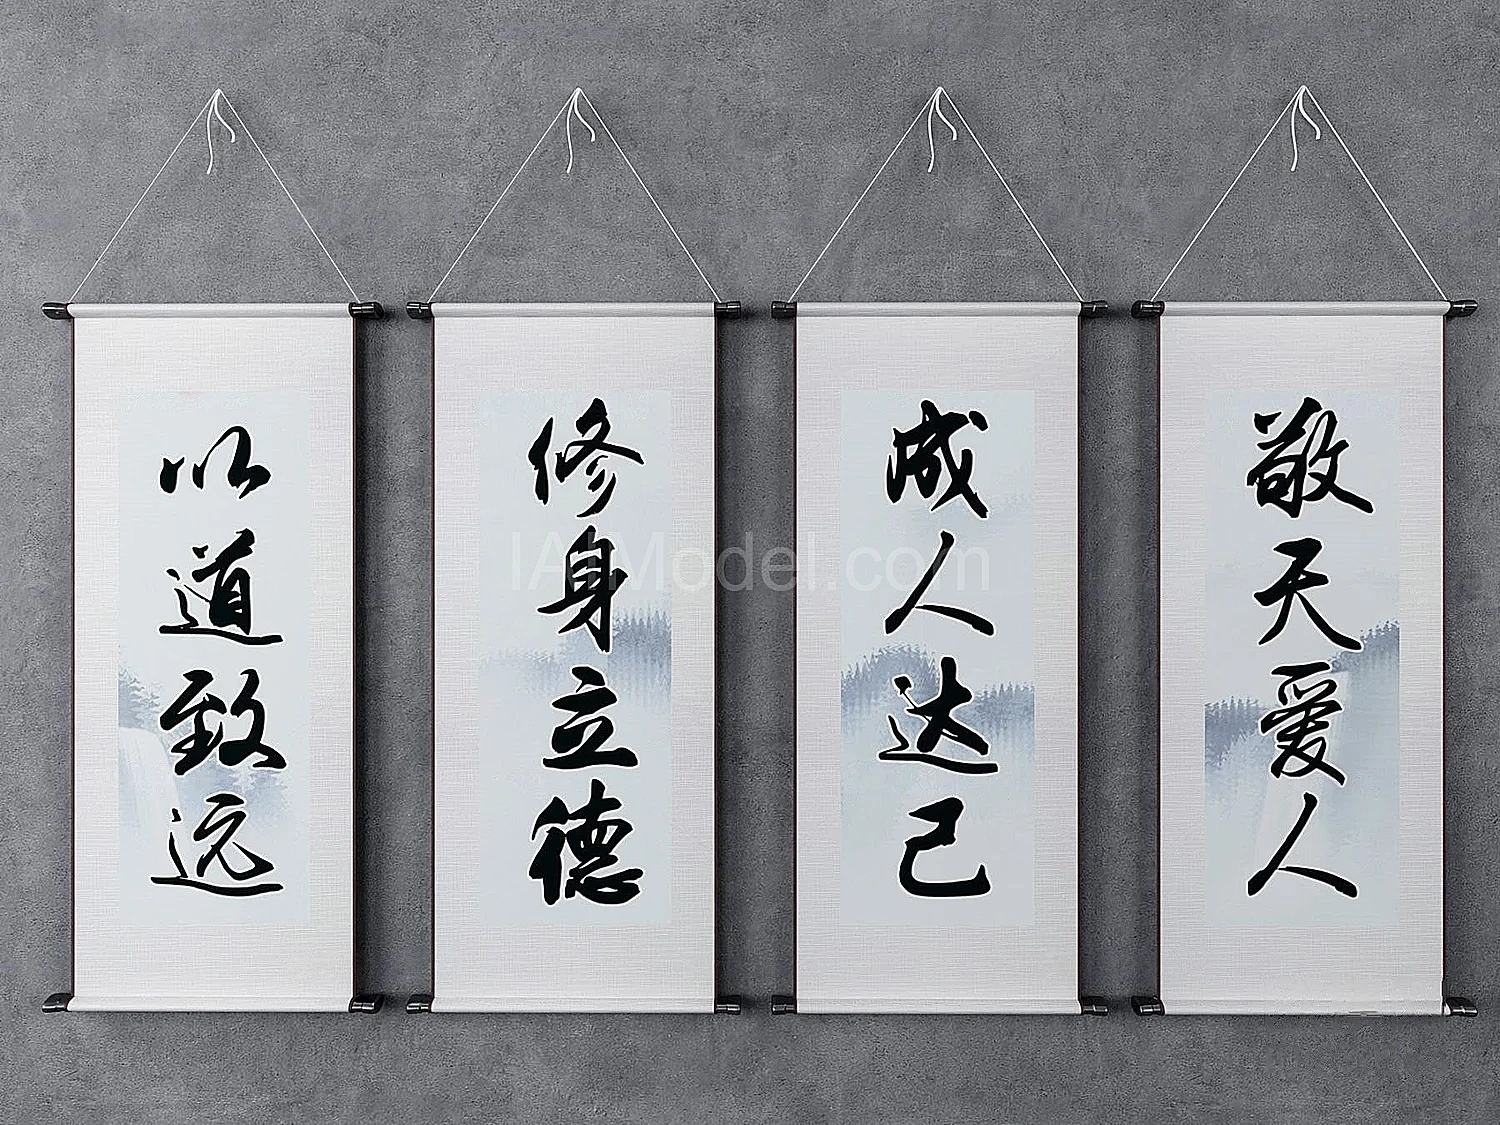 以道致远
修身立德
成人达己
敬天爱人